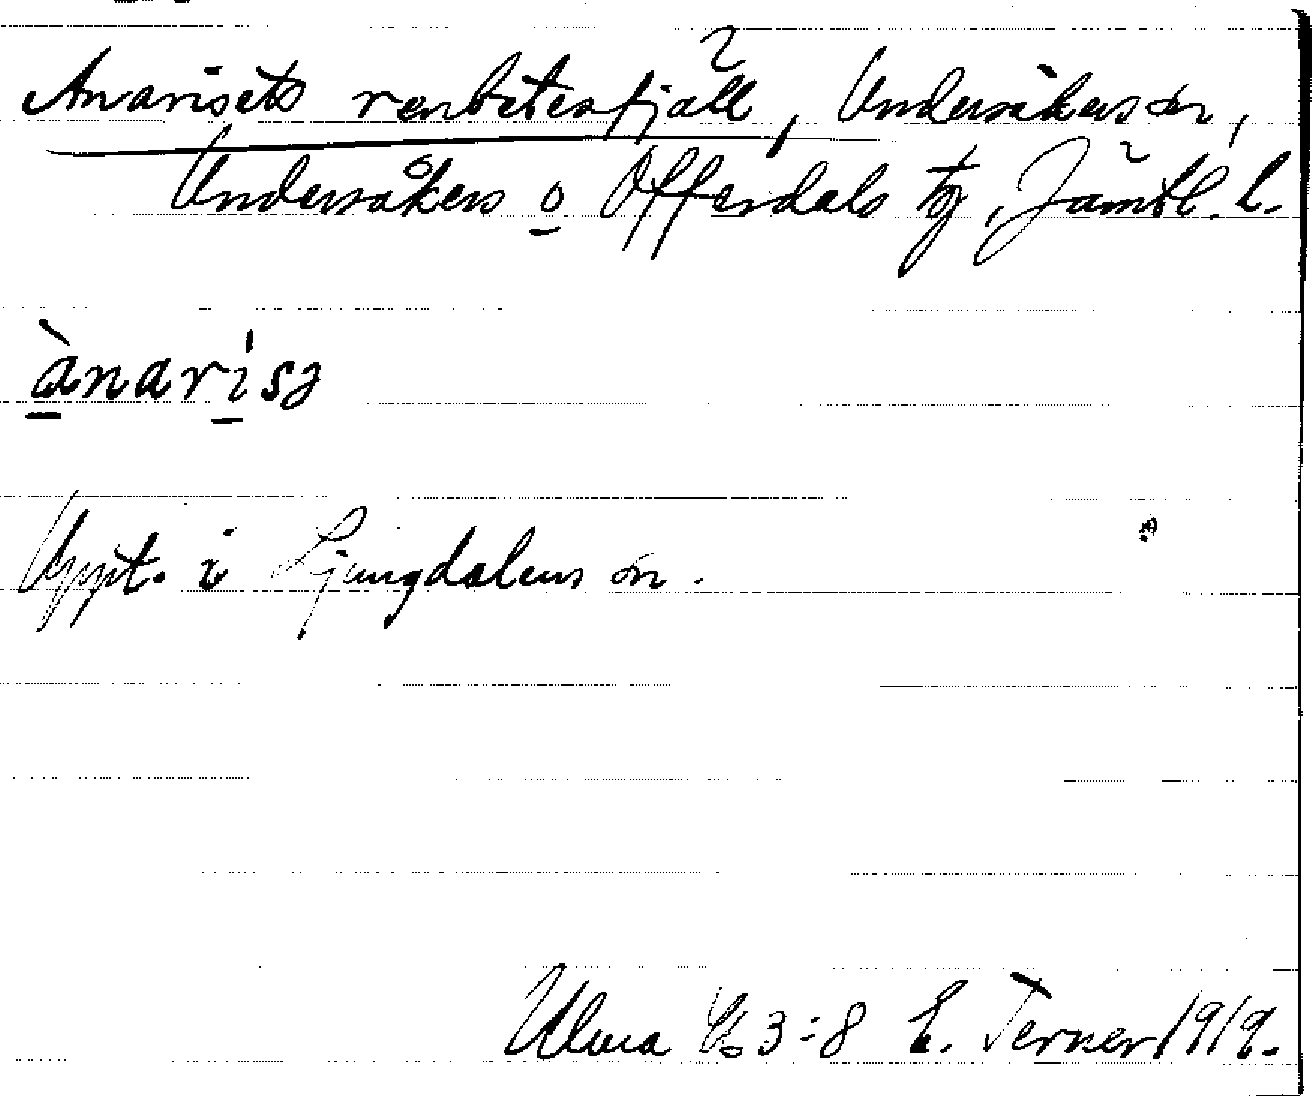 Anarisets renbetesfjäll, Undersåkers sn,
Undersåkers o Offerdals tg, Jämtl. l.
ànarisə
Uppt. i Ljungdalens sn.
Ulma 3:8 E. Terner 1919.